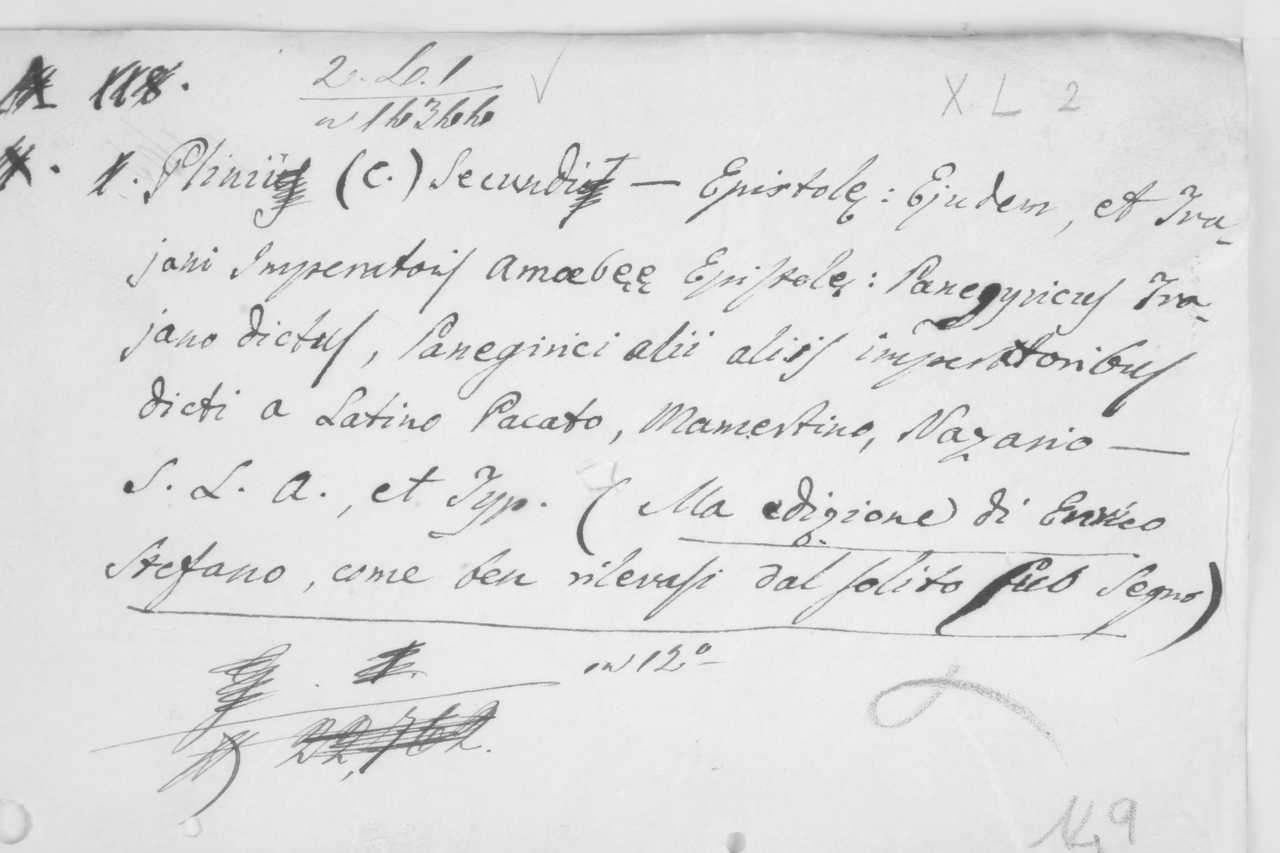 118. 2. L. 1 XL 2
1. Plinii (C.) Secundi — Epistolę: Ejudem, et Tra-
jani Imperatoris Amœbęę Epistolę: Panegyricus Tra-
jano dictus, Paneginici alii aliis imperatoribus
dicti a Latino Pacato, Mamertino, Nazario —
S. L. A., et Typ. (Ma edizione di Enrico
Stefano, come ben rilevasi dal solito suo Segno)
in 12º
22,762.